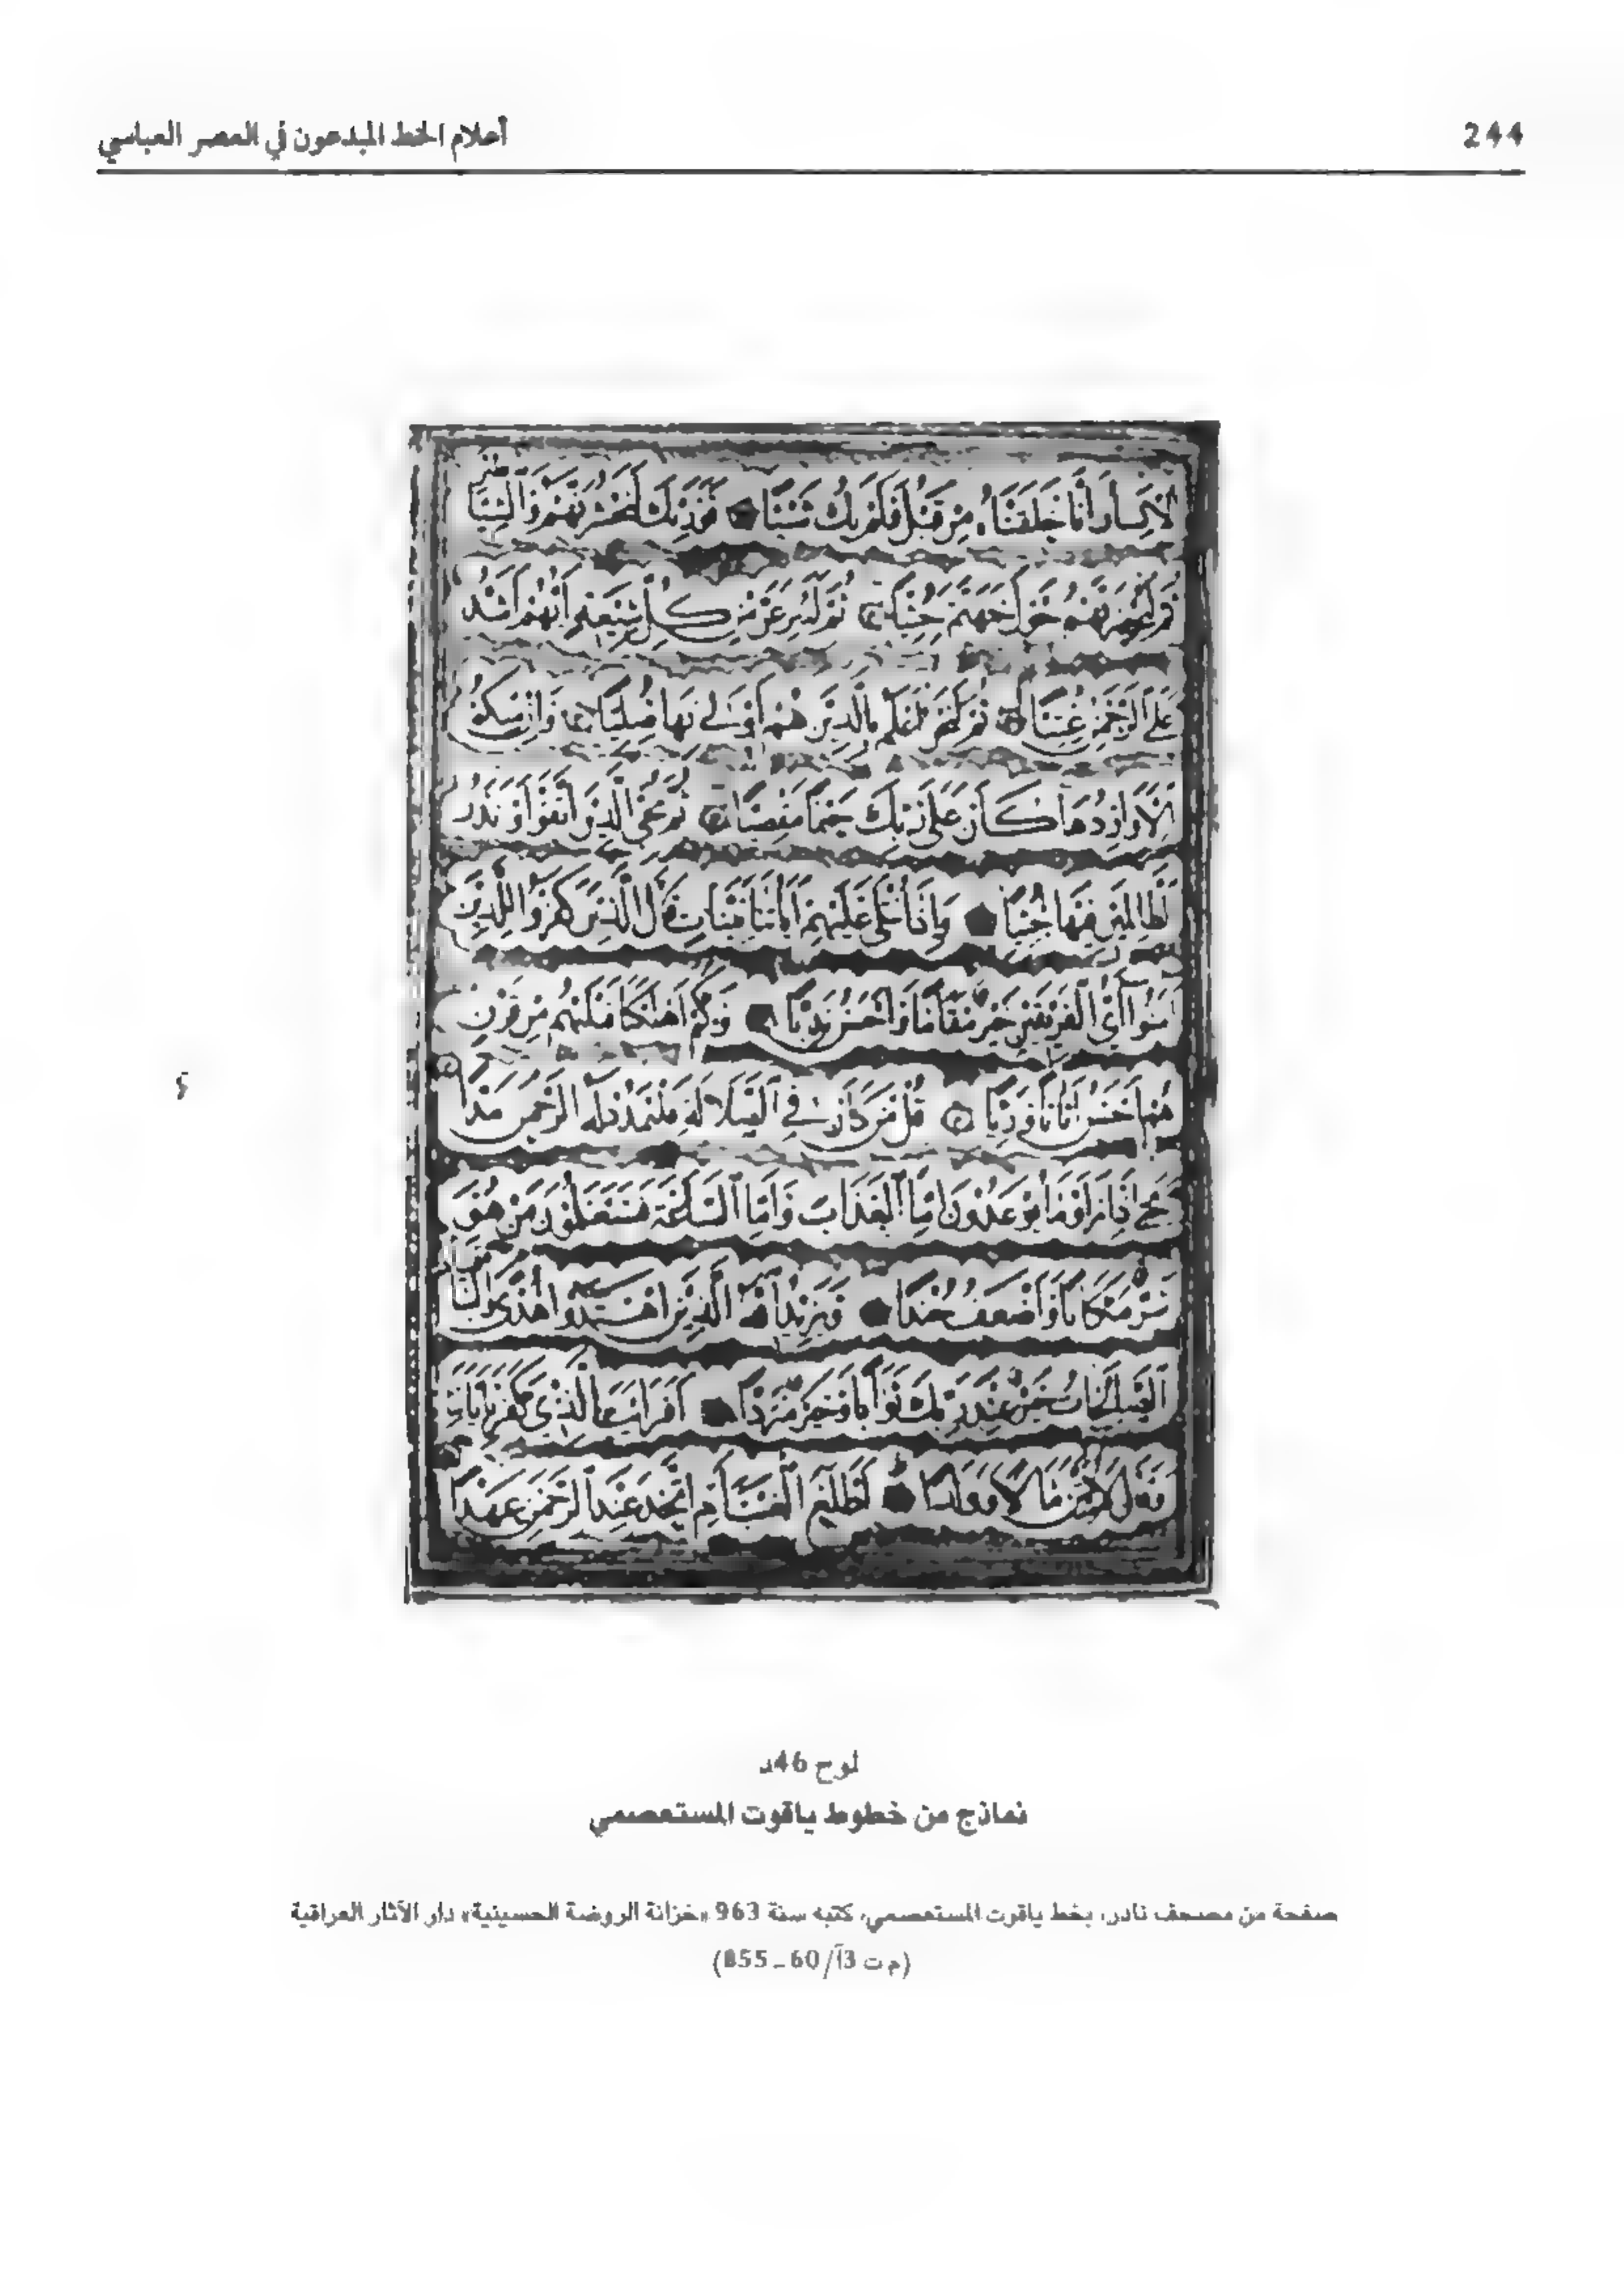 أعلام الخط المبدعون في العصر العباسي
244
الانسان أنا خلقناه من قبل ولم يك شيئا فوربك لنحشرنهم والشياطين
ثم لنحضرنهم حول جهنم جثيا ثم لننزعن من كل شيعة أيهم أشد
على الرحمن عتيا ثم لنحن أعلم بالذين هم أولى بها صليا وإن منكم
إلا واردها كان على ربك حتما مقضيا ثم ننجي الذين اتقوا ونذر
الظالمين فيها جثيا وإذا تتلى عليهم آياتنا بينات قال الذين كفروا للذين
آمنوا أي الفريقين خير مقاما وأحسن نديا وكم أهلكنا قبلهم من قرن
هم أحسن أثاثا ورئيا قل من كان في الضلالة فليمدد له الرحمن مدا
حتى إذا رأوا ما يوعدون إما العذاب وإما الساعة فسيعلمون من هو
شر مكانا وأضعف جندا ويزيد الله الذين اهتدوا هدى والباقيات
الصالحات خير عند ربك ثوابا وخير مردا أفرأيت الذي كفر بآياتنا
وقال لأوتين مالا وولدا أطلع الغيب أم اتخذ عند الرحمن عهدا
لوح 46د
نماذج من خطوط ياقوت المستعصمي
صفحة من مصحف نادر، بخط ياقوت المستعصمي، كتبه سنة 963 «خزانة الروضة الحسينية» دار الآثار العراقية
(م ت 3آ/60 ـ 855)